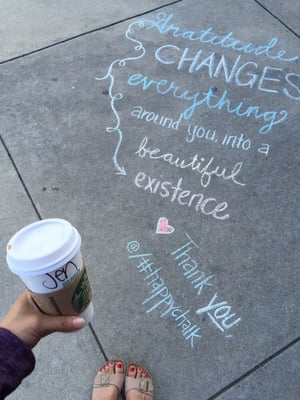 Gratitude
CHANGES
everything
around you, into a
beautiful
existence
Thank YOU,
@/#happychalk
Jen